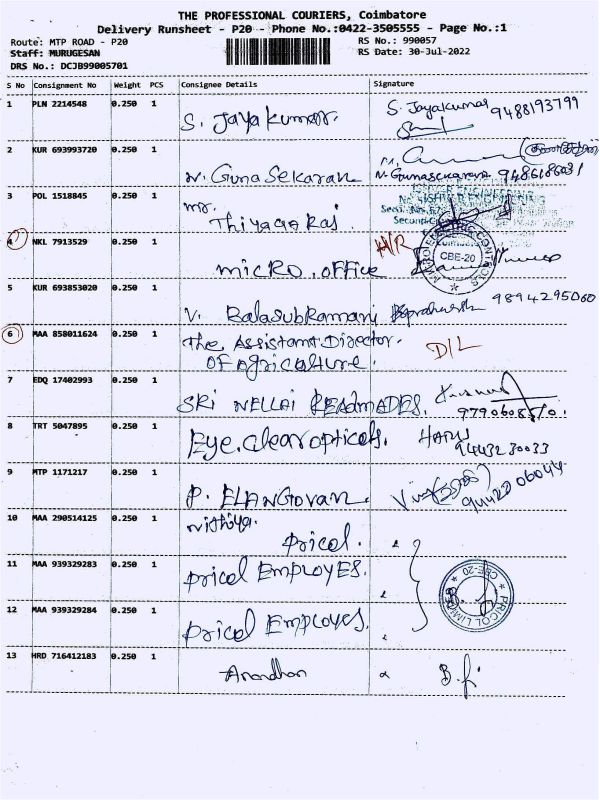 THE PROFESSIONAL COURIERS, Coimbatore
Delivery Runsheet - P20 - Phone No.:0422-3505555 - Page No.:1
Route: MTP ROAD - P20
RS No.: 990057
Staff: MURUGESAN
RS Date: 30-Jul-2022
DRS No.: DCJB99005701
S No Consignment No Weight PCS Consignee Details Signature
1 PLN 2214548 0.250 1 S. Jayakumar. S. Jayakumar 9488193799
2 KUR 693993720 0.250 1 N. Guna Sekaran N. Gunasekaran
3 POL 1518845 0.250 1 Mr. Thiyagaraj
4 NKL 7913529 0.250 1 Micro. office H/R
MICRO ELECTRIC CONTROLS CBE-20
5 KUR 693853020 0.250 1 V. Balasubramani 9894295060
6 MAA 858011624 0.250 1 The Assistant Director D/L
OF Agriculture.
7 EDQ 17402993 0.250 1 SRI NELLAI READMADES.
8 TRT 5047895 0.250 1 Eye. clear opticals. HARI
9443230033
9 MTP 1171217 0.250 1 P. ELANGOVAN.
10 MAA 290514125 0.250 1 Nithiya.
Pricol.
11 MAA 939329283 0.250 1 Pricol EMPLOYES.
PRICOL LIMITED CBE-20
12 MAA 939329284 0.250 1 Pricol Employes.
13 HRD 716412183 0.250 1 Anandhan